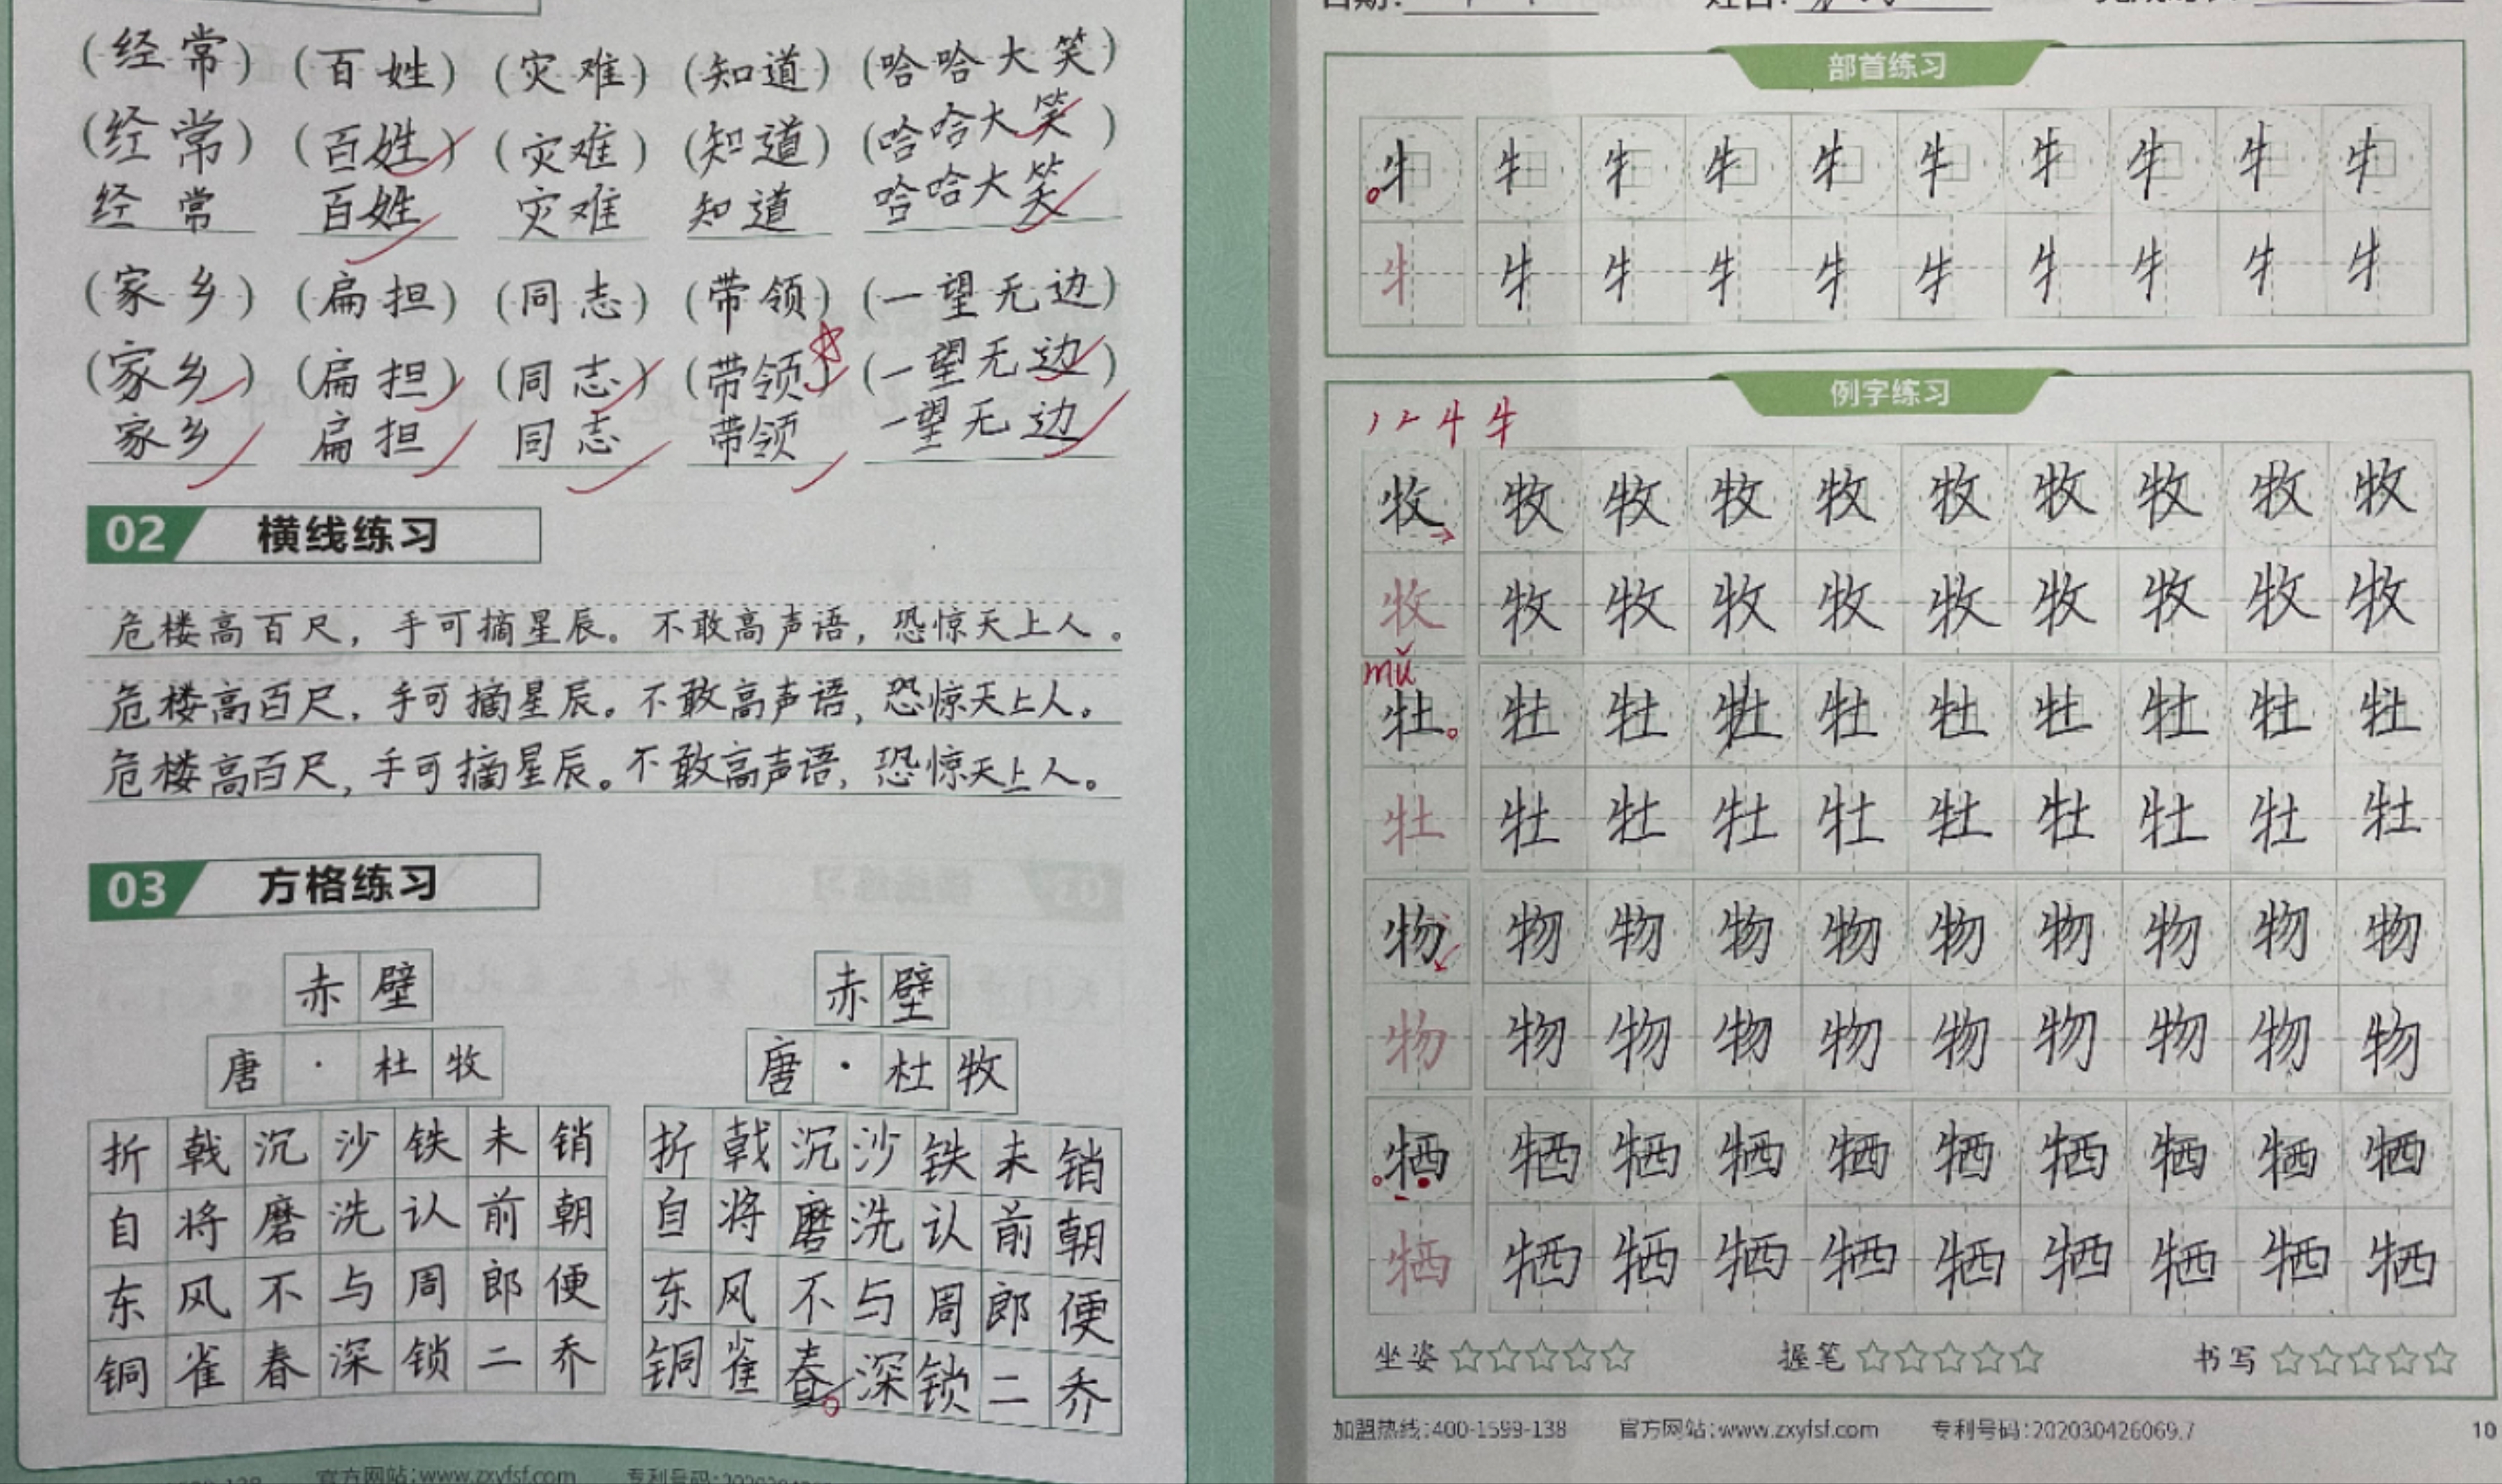 (经常) (百姓) (灾难) (知道) (哈哈大笑)
(经常) (百姓) (灾难) (知道) (哈哈大笑)
经常 百姓 灾难 知道 哈哈大笑
(家乡) (扁担) (同志) (带领) (一望无边)
(家乡) (扁担) (同志) (带领) (一望无边)
家乡 扁担 同志 带领 一望无边
02 横线练习
危楼高百尺，手可摘星辰。不敢高声语，恐惊天上人。
危楼高百尺，手可摘星辰。不敢高声语，恐惊天上人。
危楼高百尺，手可摘星辰。不敢高声语，恐惊天上人。
03 方格练习
赤壁
唐·杜牧
折戟沉沙铁未销
自将磨洗认前朝
东风不与周郎便
铜雀春深锁二乔
赤壁
唐·杜牧
折戟沉沙铁未销
自将磨洗认前朝
东风不与周郎便
铜雀春深锁二乔
官方网站:www.zxyfsf.com
部首练习
牜 牜 牜 牜 牜 牜 牜 牜 牜 牜
牜 牜 牜 牜 牜 牜 牜 牜 牜 牜
例字练习
牧 牧 牧 牧 牧 牧 牧 牧 牧 牧
牧 牧 牧 牧 牧 牧 牧 牧 牧 牧
mǔ
牡 牡 牡 牡 牡 牡 牡 牡 牡 牡
牡 牡 牡 牡 牡 牡 牡 牡 牡 牡
物 物 物 物 物 物 物 物 物 物
物 物 物 物 物 物 物 物 物 物
牺 牺 牺 牺 牺 牺 牺 牺 牺 牺
牺 牺 牺 牺 牺 牺 牺 牺 牺 牺
坐姿☆☆☆☆☆ 握笔☆☆☆☆☆ 书写☆☆☆☆☆
加盟热线:400-1599-138 官方网站:www.zxyfsf.com 专利号码:202030426069.7 10